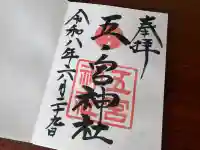 奉拝
五宮神社
五宮神社
令和八年六月二十九日